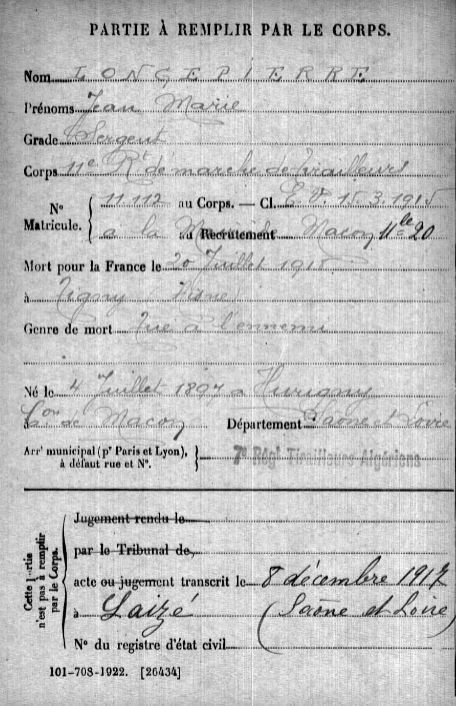 PARTIE À REMPLIR PAR LE CORPS.
Nom LONGEPIERRE
Prénoms Jean Marie
Grade Sergent
Corps 11e Rt de marche de tirailleurs
N° Matricule. { 11.112 au Corps. — Cl. E.V. 15.3.1915
à la au Recrutement Macon 11le 20
Mort pour la France le 20 Juillet 191
à Tigny Aisne
Genre de mort Tué à l'ennemi
Né le 4 Juillet 1897 à Hurigny
Con de Macon Département Saône et Loire
Arrt municipal (pr Paris et Lyon), à défaut rue et N°. } 7e Régt Tirailleurs Algériens
Cette partie n'est pas à remplir par le Corps.
Jugement rendu le
par le Tribunal de
acte ou jugement transcrit le 8 décembre 1917
à Laizé (Saône et Loire)
N° du registre d'état civil
101-708-1922. [26434]